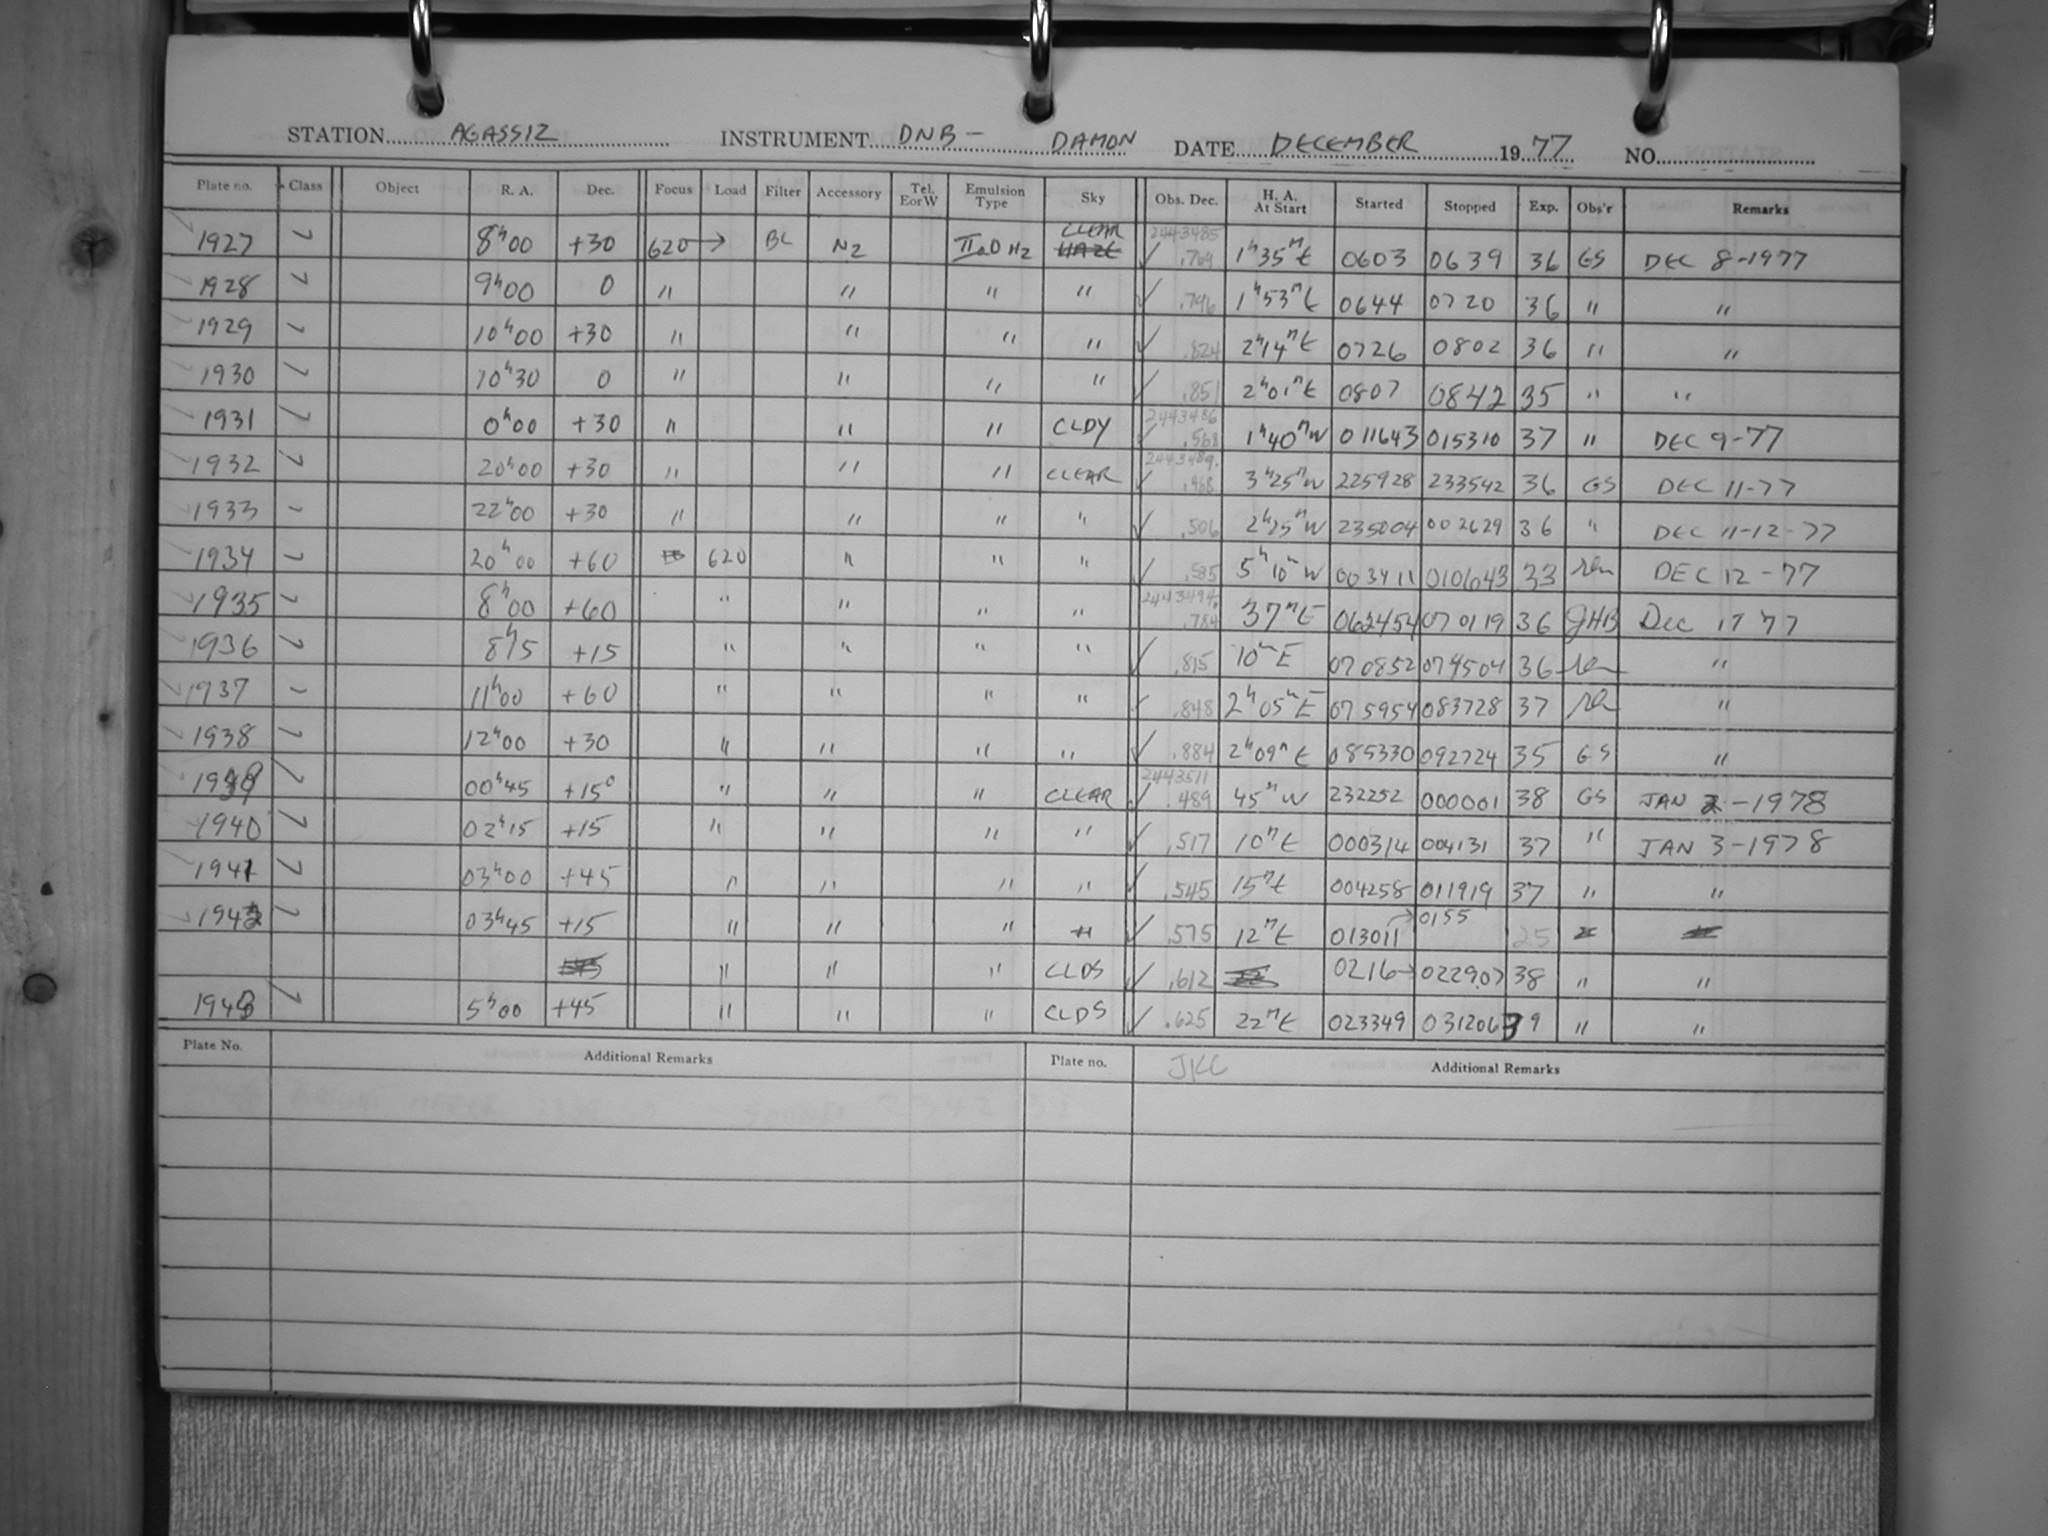 STATION AGASSIZ INSTRUMENT DNB - DAMON DATE DECEMBER 1977 NO.
Plate no. Class Object R. A. Dec. Focus Load Filter Accessory Tel. E or W Emulsion Type Sky Obs. Dec. H. A. At Start Started Stopped Exp. Obs'r Remarks
CLEAR 2443485
1927 8h00 +30 620 → BL N2 IIaO H2 HAZE ✓ .769 1h35m E 0603 0639 36 GS DEC 8-1977
1928 9h00 0 " " " " ✓ .796 1h53m E 0644 0720 36 " "
1929 10h00 +30 " " " " ✓ .824 2h14m E 0726 0802 36 " "
1930 10h30 0 " " " " ✓ .851 2h01m E 0807 0842 35 " "
2443486
1931 0h00 +30 " " " CLDY ✓ .568 1h40m W 011643 015310 37 " DEC 9-77
2443489.
1932 20h00 +30 " " " CLEAR ✓ .468 3h25m W 225928 233542 36 GS DEC 11-77
1933 22h00 +30 " " " " ✓ .506 2h25m W 235004 002629 36 " DEC 11-12-77
1934 20h00 +60 620 " " " ✓ .535 5h10m W 003411 010643 33 DEC 12-77
2443494.
1935 8h00 +60 " " " " .784 37m E 062454 070119 36 JHB Dec 17 77
1936 8h15 +15 " " " " ✓ .815 10m E 070852 074504 36 "
1937 11h00 +60 " " " " ✓ .848 2h05m E 075954 083728 37 "
1938 12h00 +30 " " " " ✓ .884 2h09m E 085330 092724 35 GS "
2443511
1939 00h45 +15° " " " CLEAR ✓ .489 45m W 232252 000001 38 GS JAN 2-1978
1940 02h15 +15 " " " " ✓ .517 10m E 000314 004131 37 " JAN 3-1978
1941 03h00 +45 " " " " ✓ .545 15m E 004258 011919 37 " "
1942 03h45 +15 " " " ✓ .575 12m E 013011 → 0155 25
" " " CLDS ✓ .612 0216 → 022907 38 " "
1943 5h00 +45 " " " CLDS ✓ .625 22m E 023349 031206 39 " "
Plate No. Additional Remarks Plate no. JKC Additional Remarks